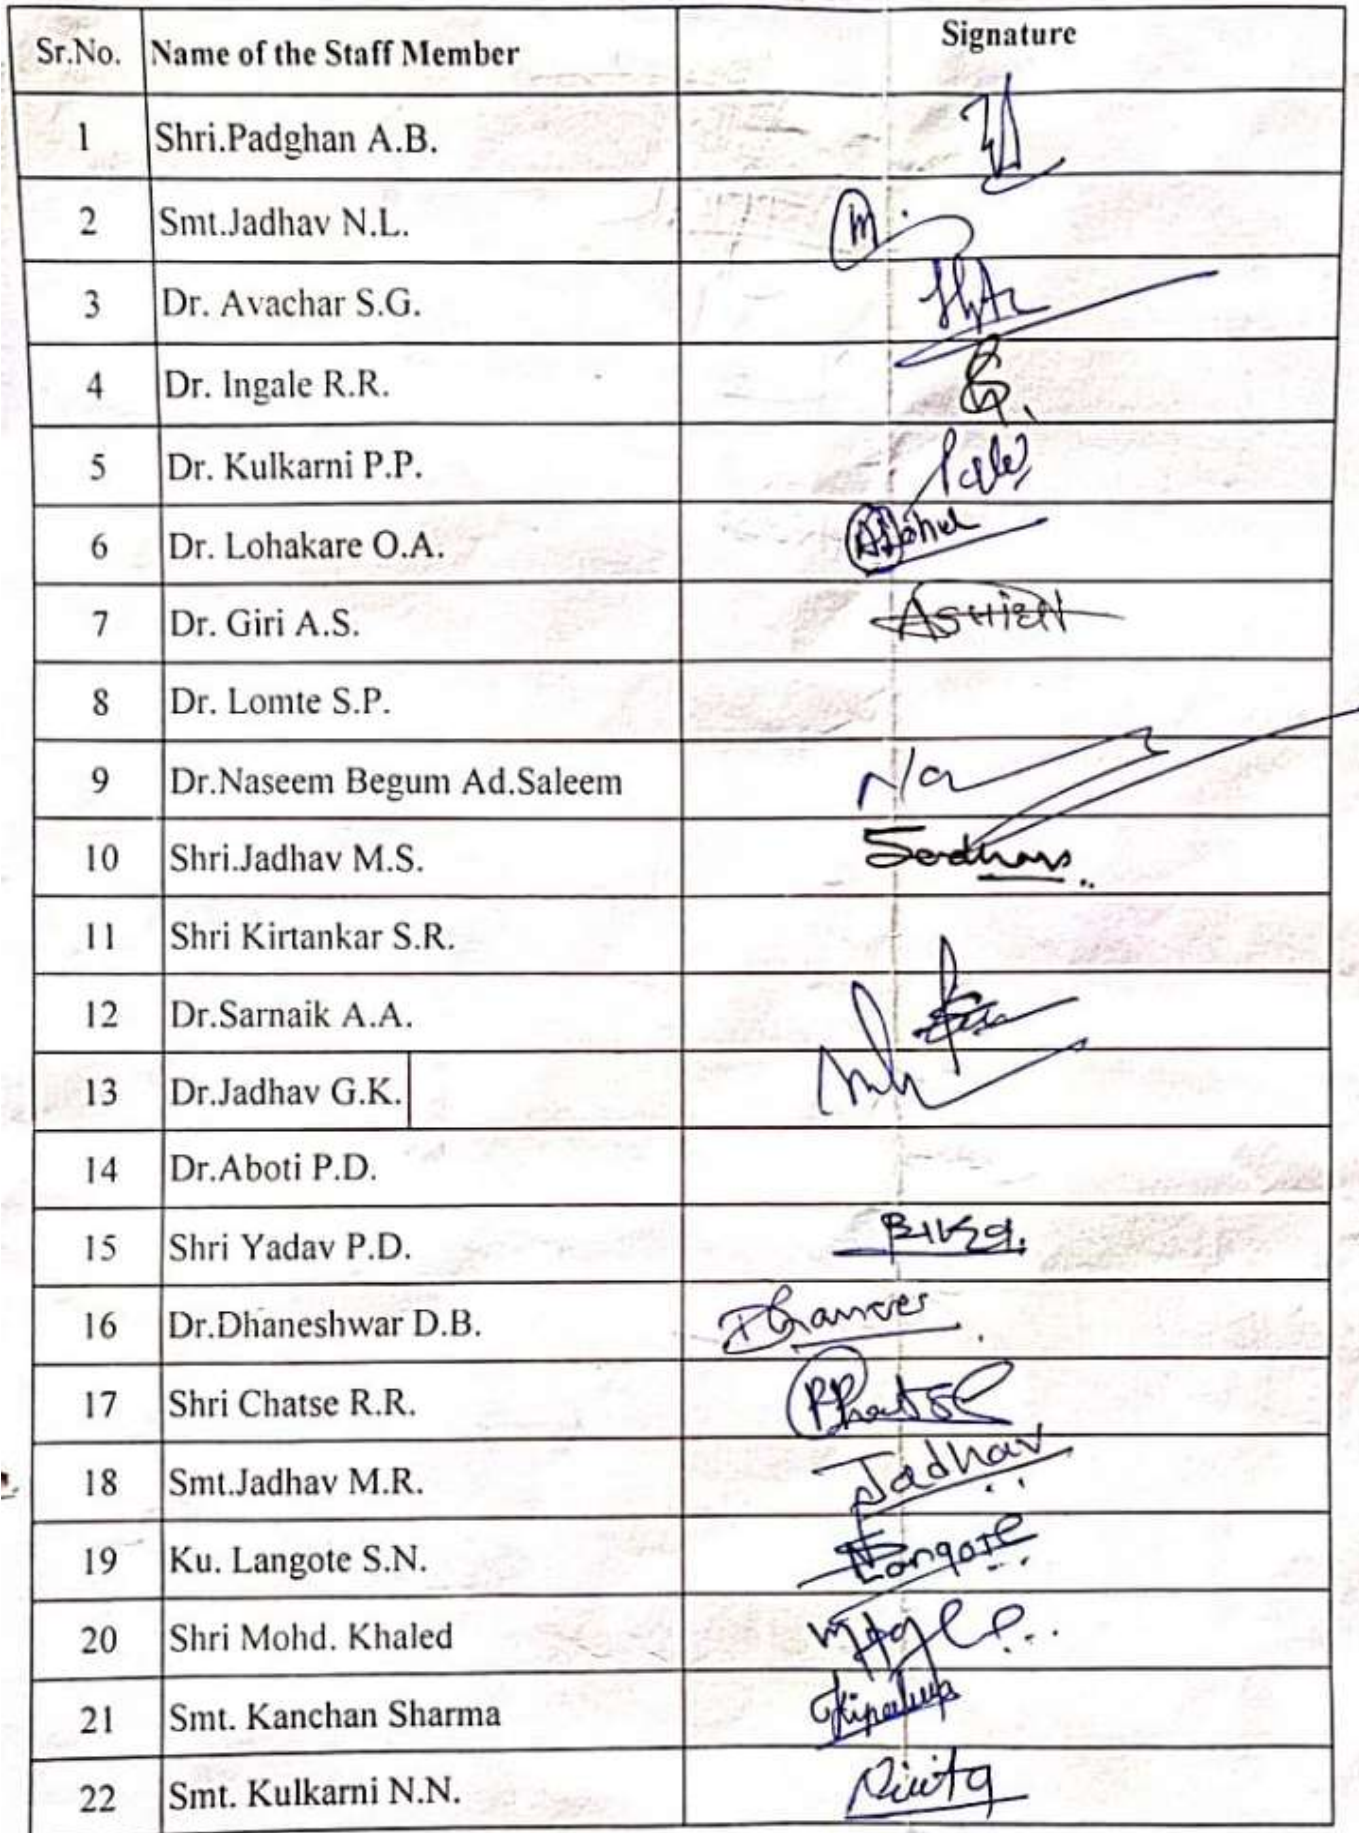 Sr.No. Name of the Staff Member Signature
1 Shri.Padghan A.B.
2 Smt.Jadhav N.L.
3 Dr. Avachar S.G.
4 Dr. Ingale R.R.
5 Dr. Kulkarni P.P.
6 Dr. Lohakare O.A.
7 Dr. Giri A.S.
8 Dr. Lomte S.P.
9 Dr.Naseem Begum Ad.Saleem
10 Shri.Jadhav M.S.
11 Shri Kirtankar S.R.
12 Dr.Sarnaik A.A.
13 Dr.Jadhav G.K.
14 Dr.Aboti P.D.
15 Shri Yadav P.D.
16 Dr.Dhaneshwar D.B.
17 Shri Chatse R.R.
18 Smt.Jadhav M.R. Jadhav
19 Ku. Langote S.N. Langote
20 Shri Mohd. Khaled
21 Smt. Kanchan Sharma
22 Smt. Kulkarni N.N.